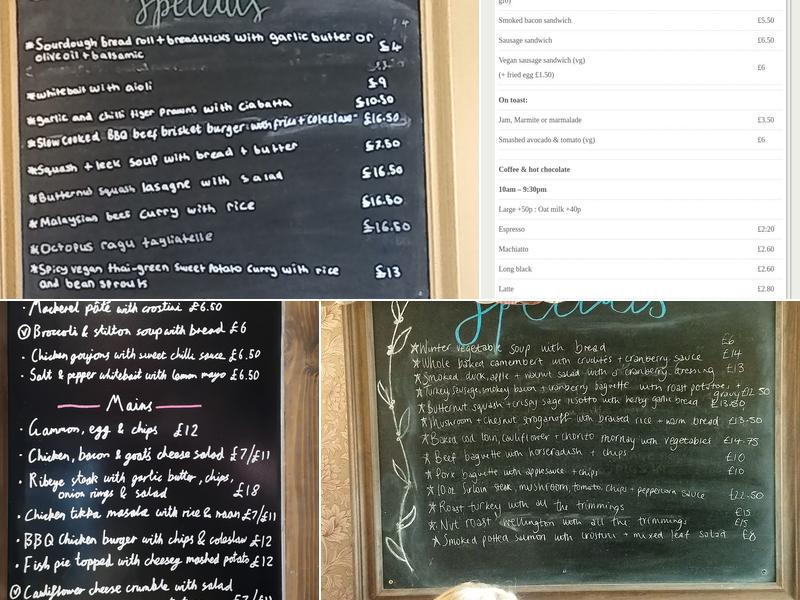 Specials
*Sourdough bread roll + breadsticks with garlic butter or £4
olive oil + balsamic
*whitebait with aioli £9
*garlic and chilli tiger prawns with ciabatta £10.50
*Slow cooked BBQ beef brisket burger with fries + coleslaw £16.50
*Squash + leek soup with bread + butter £7.50
*Butternut squash lasagne with salad £16.50
*Malaysian beef curry with rice £16.50
*Octopus ragu tagliatelle £16.50
*Spicy vegan thai-green sweet potato curry with rice £13
and bean sprouts
Smoked bacon sandwich £5.50
Sausage sandwich £6.50
Vegan sausage sandwich (vg) £6
(+ fried egg £1.50)
On toast:
Jam, Marmite or marmalade £3.50
Smashed avocado & tomato (vg) £6
Coffee & hot chocolate
10am – 9:30pm
Large +50p : Oat milk +40p
Espresso £2:20
Machiatto £2.60
Long black £2.60
Latte £2.80
Mackerel pâté with crostini £6.50
Ⓥ Broccoli & stilton soup with bread £6
· Chicken goujons with sweet chilli sauce £6.50
· Salt & pepper whitebait with lemon mayo £6.50
Mains
· Gammon, egg & chips £12
· Chicken, bacon & goats cheese salad £7/£11
· Ribeye steak with garlic butter, chips,
onion rings & salad £18
· Chicken tikka masala with rice & naan £7/£11
· BBQ Chicken burger with chips & coleslaw £12
· Fish pie topped with cheesey mashed potato £12
Ⓥ Cauliflower cheese crumble with salad
Specials
*Winter vegetable soup with bread £6
*Whole baked camembert with crudités + cranberry sauce £14
*Smoked duck, apple + walnut salad with a cranberry dressing £13
*Turkey, sausage, smokey bacon + cranberry baguette with roast potatoes + gravy £12.50
*Butternut squash + crispy sage risotto with honey garlic bread £13.50
*Mushroom + chestnut stroganoff with braised rice + warm bread £13.50
*Baked cod loin, cauliflower + chorizo mornay with vegetables £14.75
*Beef baguette with horseradish + chips £10
*Pork baguette with applesauce + chips £10
*10oz Sirloin steak, mushroom, tomato, chips + peppercorn sauce £22.50
*Roast turkey with all the trimmings £15
*Nut roast wellington with all the trimmings £15
*Smoked potted salmon with crostini + mixed leaf salad £8